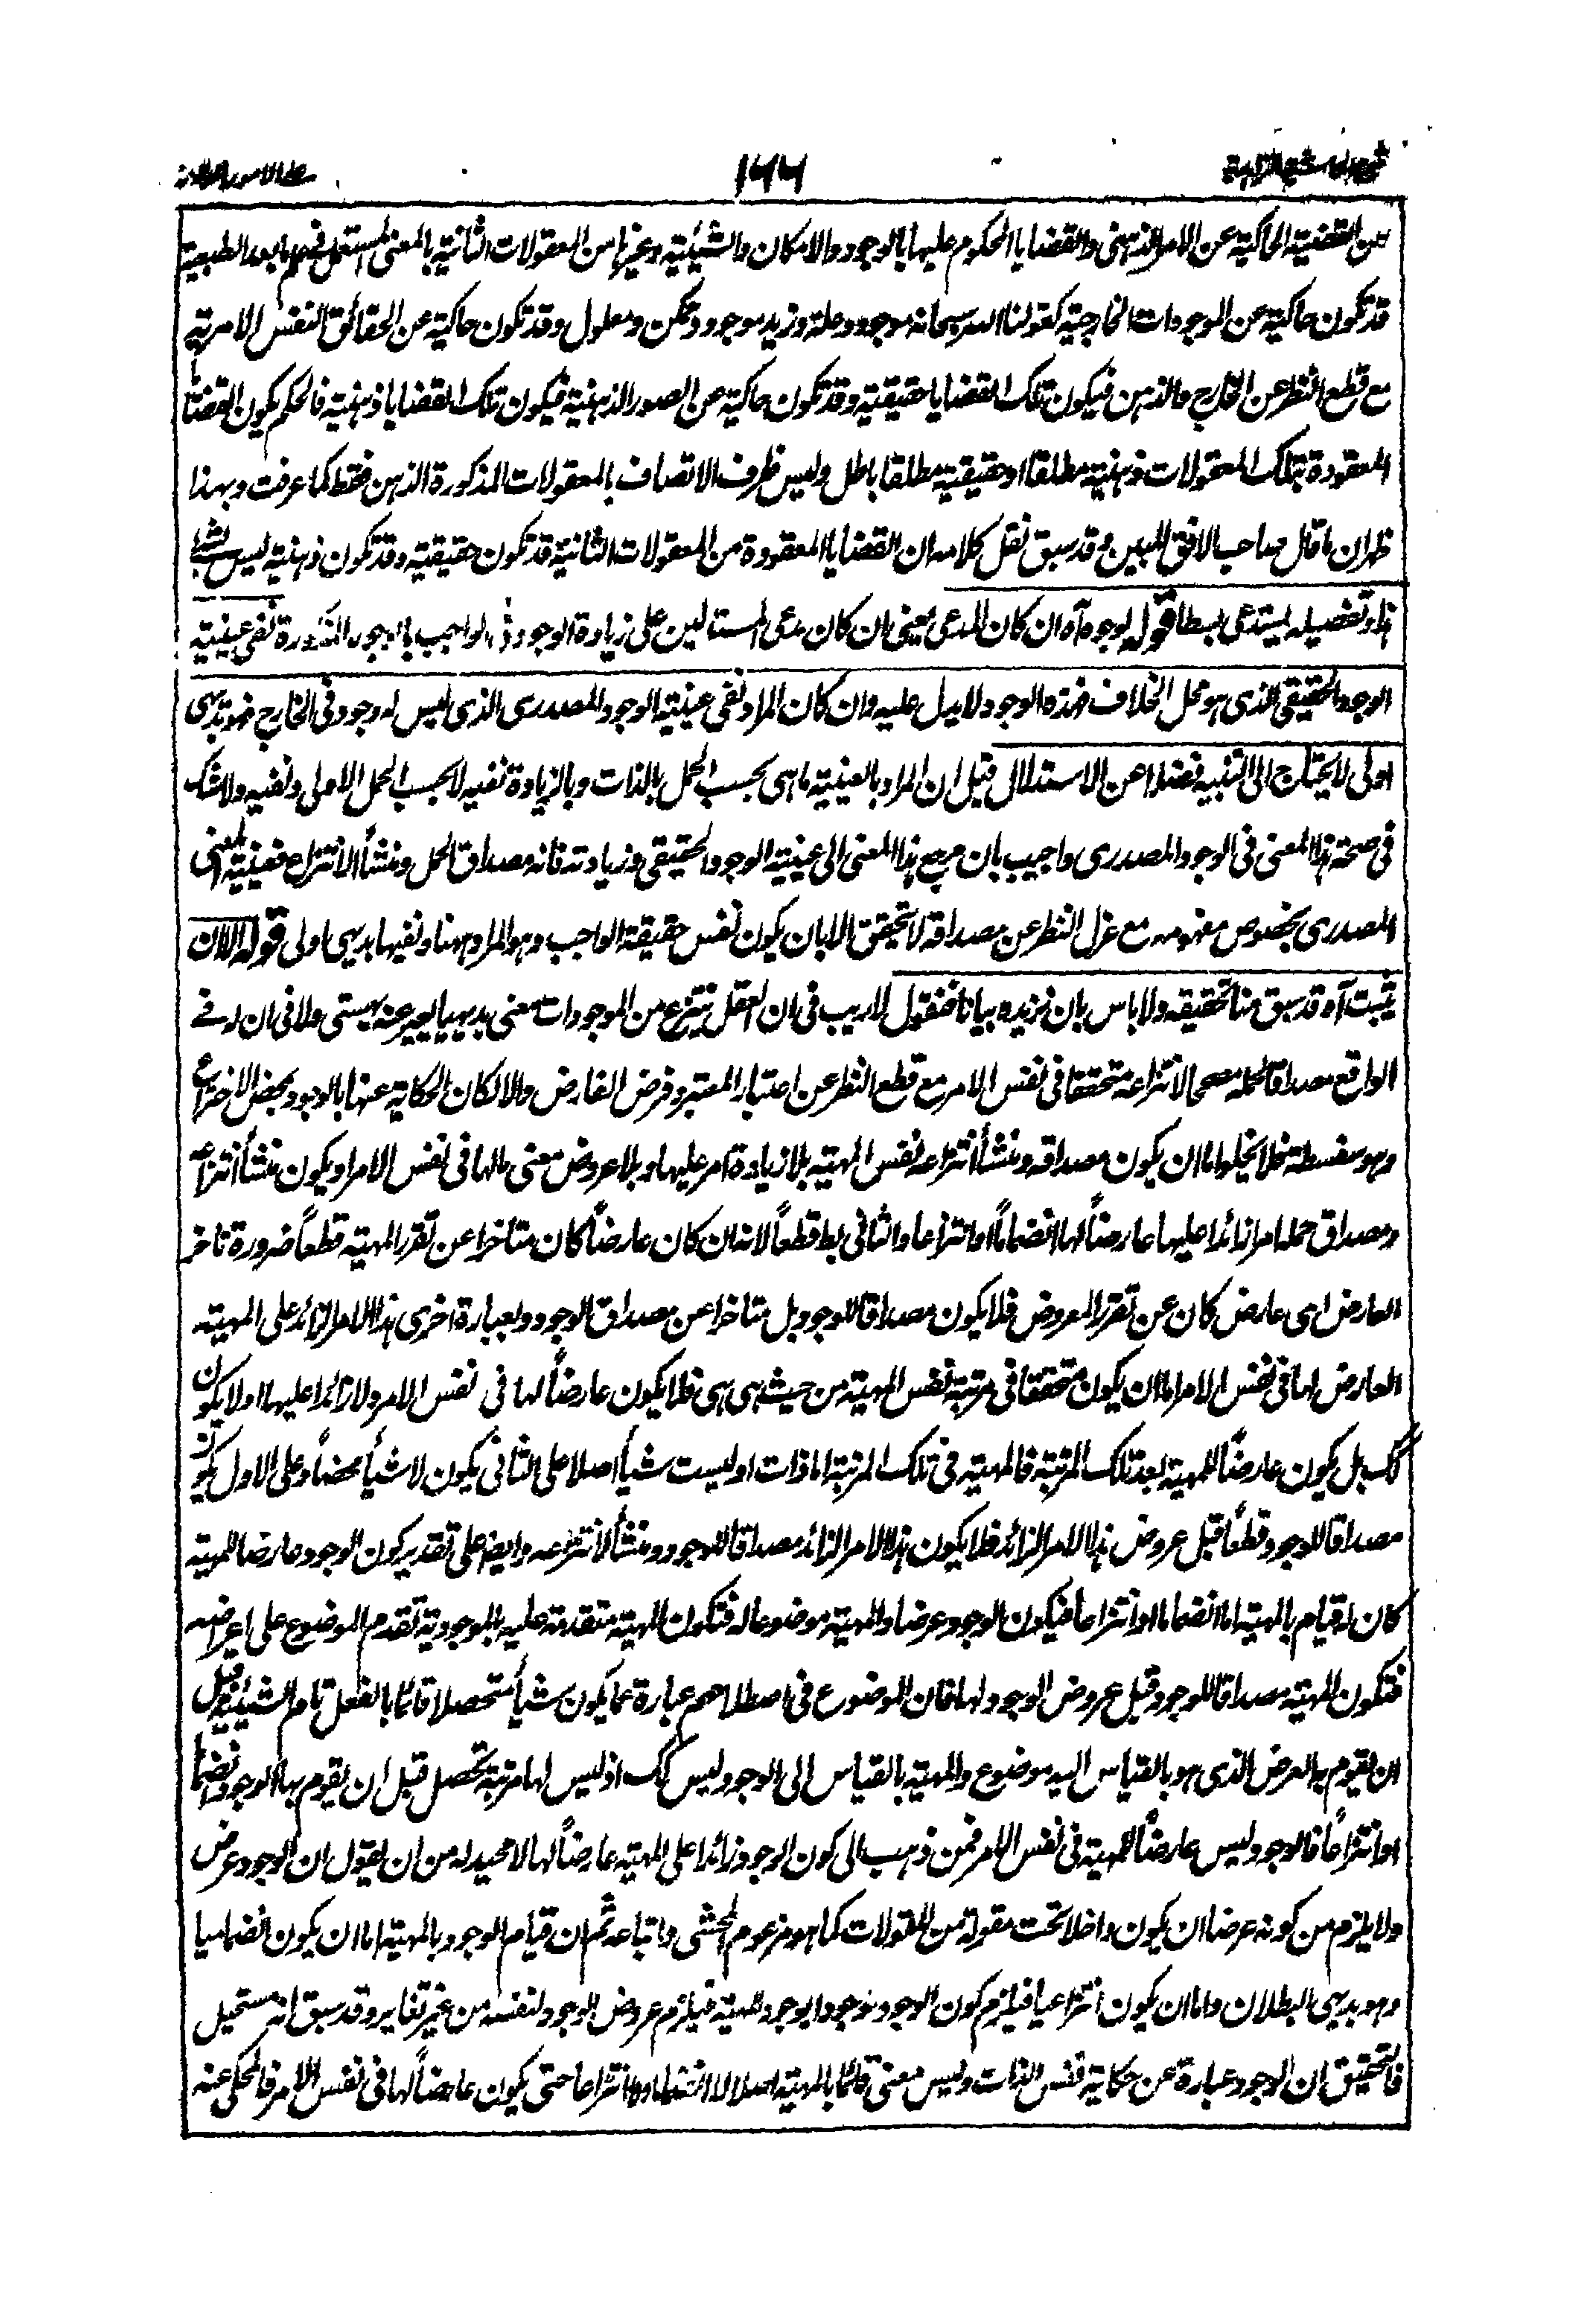 ١٦٦
من القضية الحاكية عن الامر الذهنى والقضايا المحكوم عليها بالوجود والامكان والشيئية وغيرها من المعقولات الثانية بالمعنى المستعمل فيما بعد الطبيعة
قد تكون حاكية عن الوجودات الخارجية كقولنا الله سبحانه موجود وعلة وزيد موجود وممكن ومعلول وقد تكون حاكية عن الحقائق النفس الامرية
مع قطع النظر عن الخارج والذهن فيكون تلك القضايا حقيقية وقد تكون حاكية عن الصور الذهنية فيكون تلك القضايا ذهنية فالحكم بكون القضايا
المعقودة بتلك المعقولات ذهنية مطلقا او حقيقية مطلقا باطل وليس ظرف الاتصاف بالمعقولات المذكورة الذهن فقط كما عرفت وبهذا
ظهر ان ما قال صاحب الافق المبين وقد سبق نقل كلامه ان القضايا المعقودة من المعقولات الثانية قد تكون حقيقية وقد تكون ذهنية ليس بشئ
هذا وتفصيله يستدعى بسطا قوله لوجوه آه ان كان المدعى يعنى ان كان مدعى المستدلين على زيادة الوجود فى الواجب بالوجوه المذكورة نفى عينية
الوجود الحقيقى الذى هو محل الخلاف فهذه الوجوه لا يدل عليه وان كان المراد نفى عينية الوجود المصدرى الذى ليس له وجود فى الخارج فهو بديهى
اولى لا يحتاج الى التنبيه فضلا عن الاستدلال قيل ان المراد بالعينية ما هى بحسب الحمل بالذات وبالزيادة نفيه لا بحسب الحمل الاولى ونفيه ولا شك
فى صحة هذا المعنى فى الوجود المصدرى واجيب بان مرجع هذا المعنى الى عينية الوجود الحقيقى وزيادته فانه مصداق الحمل ومنشأ الانتزاع فعينية المعنى
المصدرى بخصوص مفهومه مع عزل النظر عن مصداقه لا تتحقق الا بان يكون نفس حقيقة الواجب وهو المراد ههنا ونفيها بديهى اولى قوله الا ان
يثبت آه قد سبق منا تحقيقه ولا باس بان نزيده بيانا فنقول لا ريب فى ان العقل ينتزع من الموجودات معنى بديهيا يعبر عنه بهستى ولا فى ان له فى
الواقع مصداقا لحمله مصححا لانتزاعه متحققا فى نفس الامر مع قطع النظر عن اعتبار المعتبر وفرض الفارض والا لكان الحكاية عنها بالوجود بمحض الاختراع
وهو سفسطة فلا يخلو اما ان يكون مصداقه ومنشأ انتزاعه نفس المهية بلا زيادة امر عليها وبلا عروض معنى ما لها فى نفس الامر او يكون منشأ انتزاعه
ومصداق حمله امرا زائدا عليها عارضاً لها انضماماً او انتزاعا والثانى بط قطعاً لانه ان كان عارضاً كان متاخرا عن تقرر المهية قطعاً ضرورة تاخر
العارض اى عارض كان عن تقرر المعروض فلا يكون مصداقا للوجود بل متاخرا عن مصداق الوجود وبعبارة اخرى هذا الامر الزائد على المهية
العارض لها فى نفس الامر اما ان يكون متحققا فى مرتبة نفس المهية من حيث هى هى فلا يكون عارضاً لها فى نفس الامر ولا زائدا عليها او لا يكون
كك بل يكون عارضاً للمهية بعد تلك المرتبة فالمهية فى تلك المرتبة اما ذات او ليست شيأ اصلا على الثانى يكون لا شيأ محضاً وعلى الاول يكون
مصداقا للوجود قطعاً قبل عروض هذا الامر الزائد فلا يكون هذا الامر الزائد مصداقا للوجود ومنشأ لانتزاعه وايضا على تقدير كون الوجود عارضا للمهية
كان له قيام بالمهية اما انضماما او انتزاعا فيكون الوجود عرضا والمهية موضوعا له فتكون المهية متقدمة عليه بالموجودية تقدم الموضوع على اعراضه
فتكون المهية مصداقا للوجود قبل عروض الوجود لها فان الموضوع فى اصطلاحهم عبارة عما يكون شيأ متحصلا قائما بالفعل تام الشيئية قبل
ان يقوم به العرض الذى هو بالقياس اليه موضوع والمهية بالقياس الى الوجود ليس كك اذ ليس لها مرتبة تحصل قبل ان يقوم بها الوجود انضماما
او انتزاعاً فالوجود ليس عارضاً للمهية فى نفس الامر فمن ذهب الى كون الوجود زائدا على المهية عارضاً لها لا محيد له من ان يقول ان الوجود عرض
ولا يلزم من كونه عرضا ان يكون داخلا تحت مقولة من المقولات كما هو مزعوم المحشى واتباعه ثم ان قيام الوجود بالمهية اما ان يكون انضماميا
وهو بديهى البطلان واما ان يكون انتزاعيا فيلزم كون الوجود موجودا بوجود المهية فيلزم عروض الوجود لنفسه من غير تغاير وقد سبق انه مستحيل
فالتحقيق ان الوجود عبارة عن حكاية نفس الذات وليس معنى قائما بالمهية اصلا لا انضماما ولا انتزاعا حتى يكون عارضاً لها فى نفس الامر فالمحكى عنه